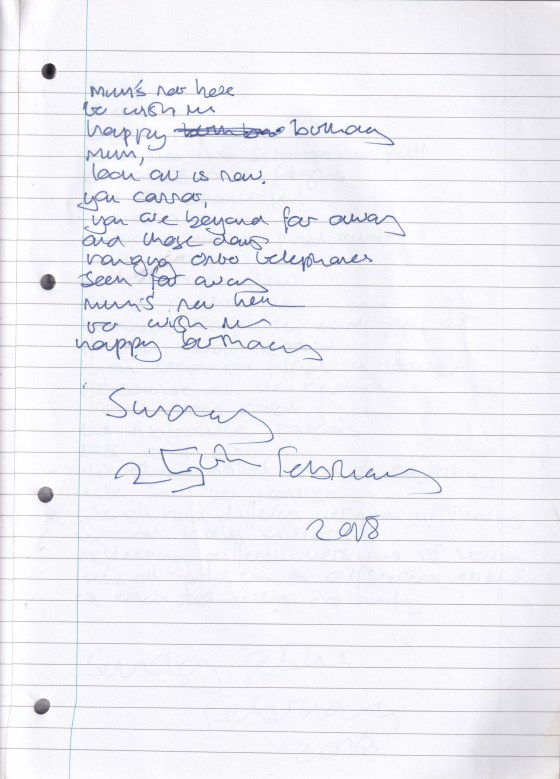 mum's not here
to wish me
happy birthday
mum,
look at us now.
you cannot,
you are beyond far away
and those days
hanging onto telephones
seem far away
mum's not here
to wish me
happy birthday
Sunday
25th February
2018